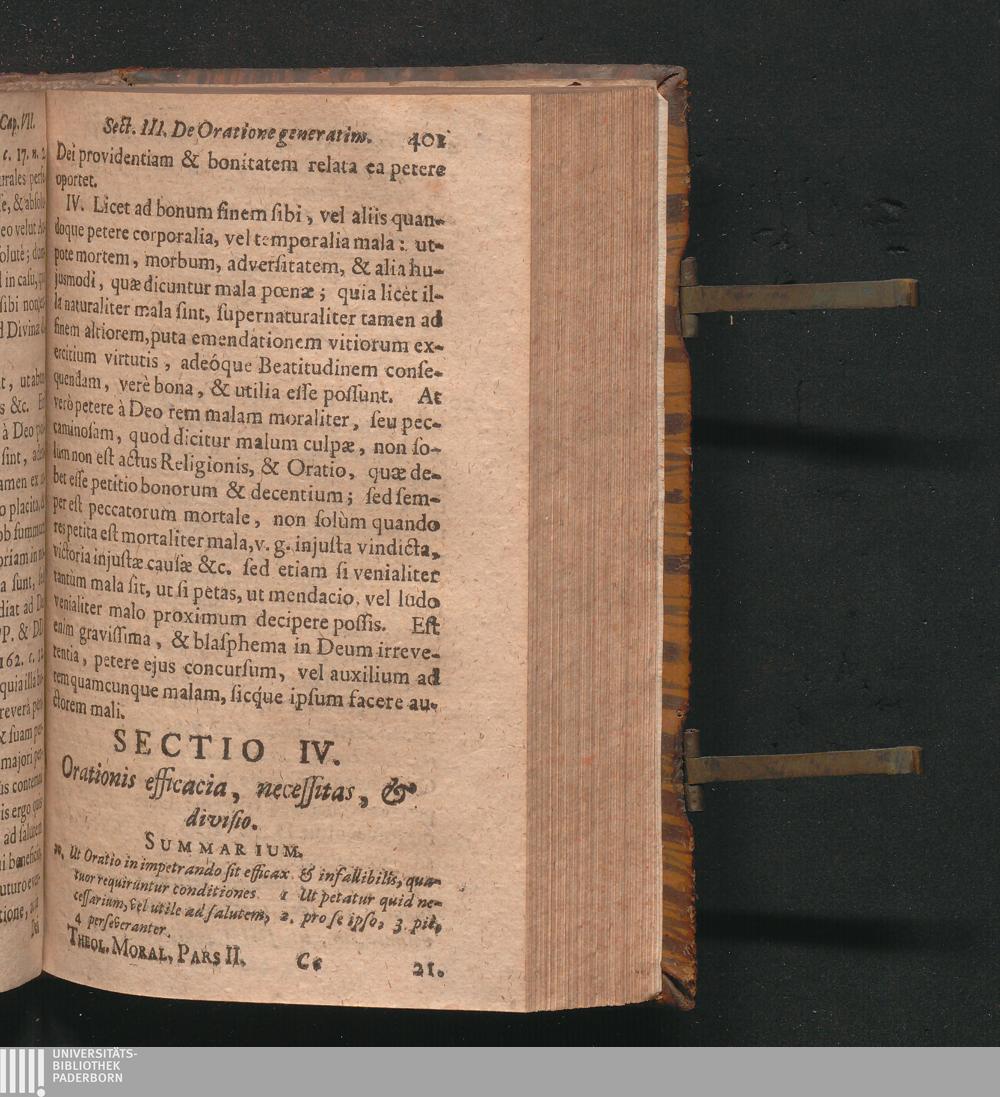 Cap. VII.
c. 17. n. 2.
Sect. III. De Oratione generatim. 401
Dei providentiam & bonitatem relata ea petere
oportet.
IV. Licet ad bonum finem sibi, vel aliis quan-
doque petere corporalia, vel temporalia mala: ut-
pote mortem, morbum, adversitatem, & alia hu-
jusmodi, quæ dicuntur mala pœnæ; quia licèt il-
la naturaliter mala sint, supernaturaliter tamen ad
finem altiorem, puta emendationem vitiorum ex-
ercitium virtutis, adeóque Beatitudinem conse-
quendam, verè bona, & utilia esse possunt. At
verò petere à Deo rem malam moraliter, seu pec-
caminosam, quod dicitur malum culpæ, non so-
lùm non est actus Religionis, & Oratio, quæ de-
bet esse petitio bonorum & decentium; sed sem-
per est peccatorum mortale, non solùm quando
res petita est mortaliter mala, v. g. injusta vindicta,
victoria injustæ causæ &c. sed etiam si venialiter
tantùm mala sit, ut si petas, ut mendacio, vel ludo
venialiter malo proximum decipere possis. Est
enim gravissima, & blasphema in Deum irreve-
rentia, petere ejus concursum, vel auxilium ad
rem quamcunque malam, sicq́ue ipsum facere au-
ctorem mali.
SECTIO IV.
Orationis efficacia, necessitas, &
divisio.
SUMMARIUM.
20. Ut Oratio in impetrando sit efficax & infallibilis, qua-
tuor requiruntur conditiones 1 Ut petatur quid ne-
cessarium, vel utile ad salutem, 2. pro se ipso, 3. piè,
4 perseveranter.
THEOL. MORAL, PARS II. Cc 21.
UNIVERSITÄTS-
BIBLIOTHEK
PADERBORN